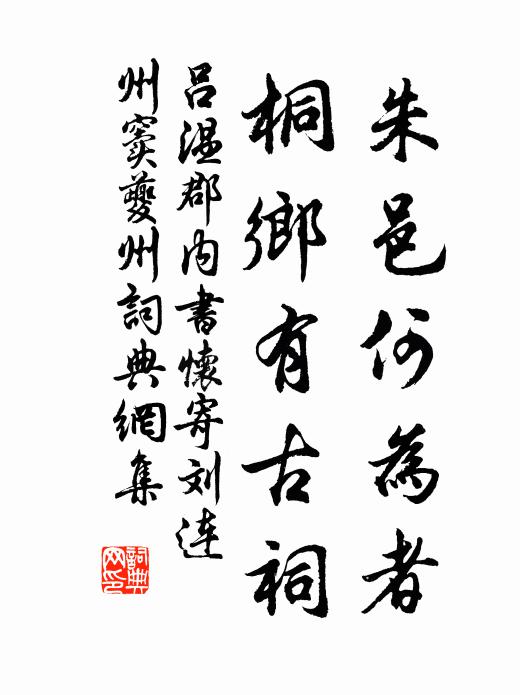 朱邑何為者
桐鄉有古祠
吕温郡内書懷寄刘连
州窦夔州詞典網集
詞典网印